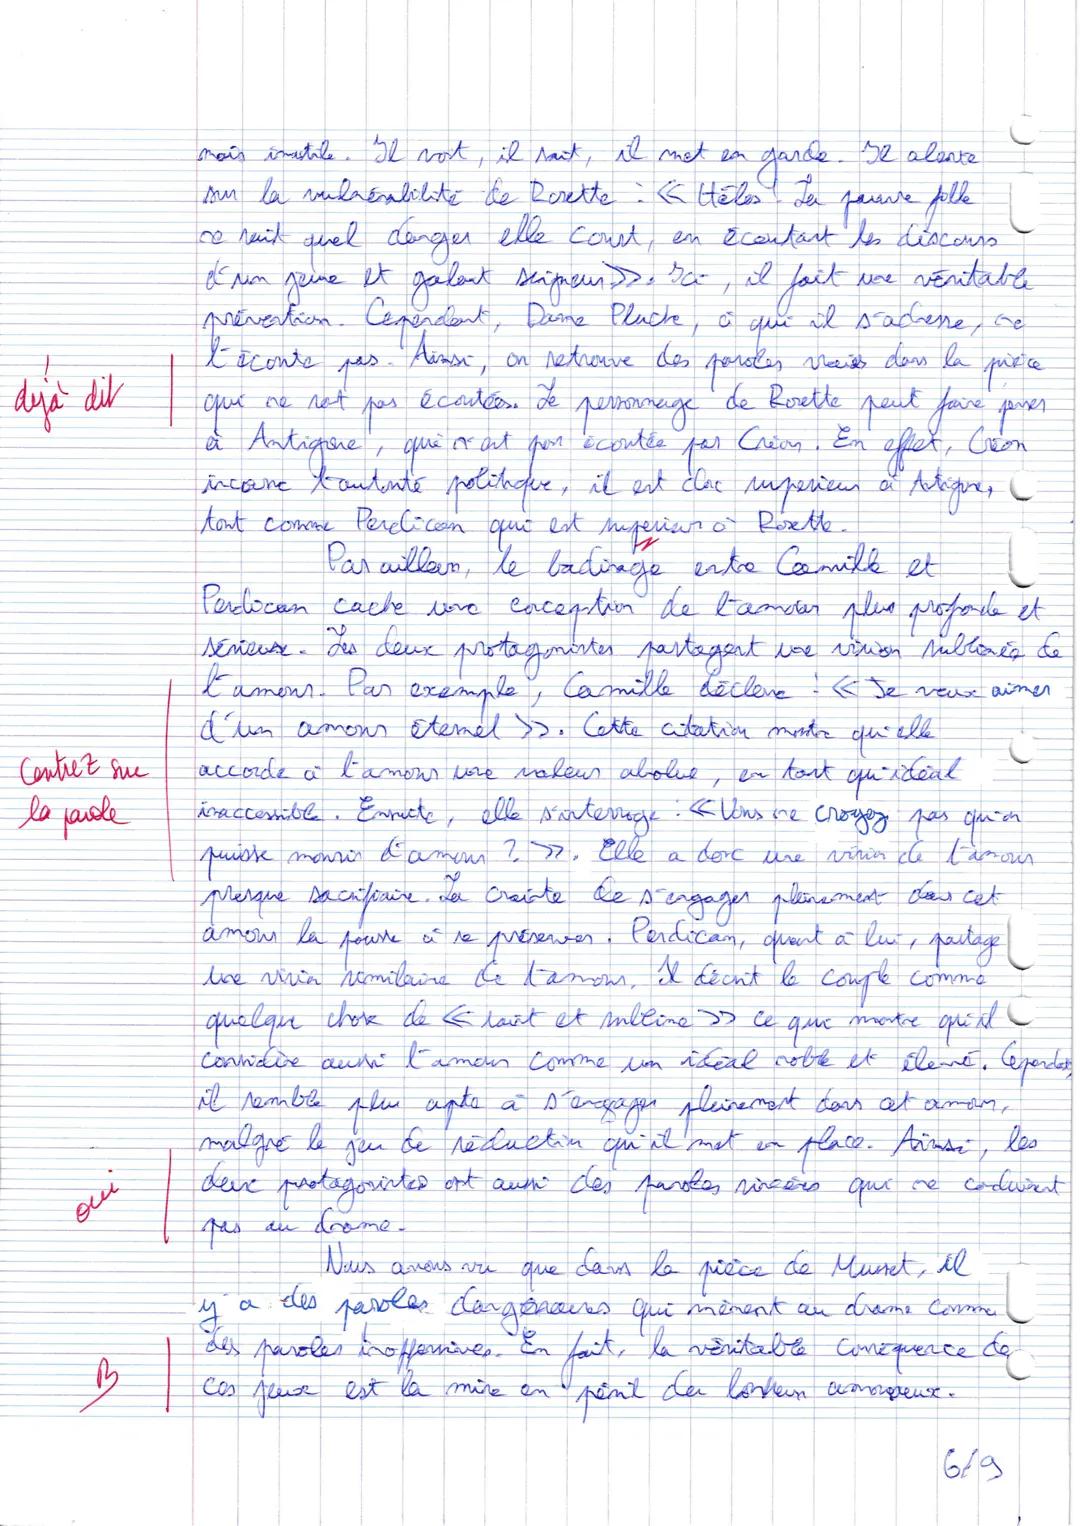 mais inutile. Il voit, il sait, il met en garde. Il alerte
sur la vulnérabilité de Rosette : << Hélas ! La pauvre folle
ne sait quel danger elle court, en écoutant les discours
d'un jeune et galant seigneur >>. Ici, il fait une véritable
prévention. Cependant, Dame Pluche, à qui il s'adresse, ne
l'écoute pas. Ainsi, on retrouve des paroles vraies dans la pièce
déjà dit
qui ne sont pas écoutées. Le personnage de Rosette peut faire penser
à Antigone, qui n'est pas écoutée par Créon. En effet, Créon
incarne l'autorité politique, il est donc supérieur à Antigone,
tout comme Perdican qui est supérieur à Rosette.
Par ailleurs, le badinage entre Camille et
Perdican cache une conception de l'amour plus profonde et
sérieuse. Les deux protagonistes partagent une vision sublimée de
l'amour. Par exemple, Camille déclare : << Je veux aimer
d'un amour éternel >>. Cette citation montre qu'elle
Centrez sur
la parole
accorde à l'amour une valeur absolue, en tant qu'idéal
inaccessible. Ensuite, elle s'interroge : << Vous ne croyez pas qu'on
puisse mourir d'amour ? >>. Elle a donc une vision de l'amour
presque sacrificiaire. La crainte de s'engager pleinement dans cet
amour la pousse à se préserver. Perdican, quant à lui, partage
une vision similaire de l'amour. Il décrit le couple comme
quelque chose de << saint et sublime >> ce qui montre qu'il
considère aussi l'amour comme un idéal noble et élevé. Cependant,
il semble plus apte à s'engager pleinement dans cet amour,
malgré le jeu de séduction qu'il met en place. Ainsi, les
oui
deux protagonistes ont aussi des paroles sincères qui ne conduisent
pas au drame.
Nous avons vu que dans la pièce de Musset, il
y a des paroles dangereuses qui mènent au drame comme
des paroles inoffensives. En fait, la véritable conséquence de
B
ces jeux est la mise en péril du bonheur amoureux.
6/9